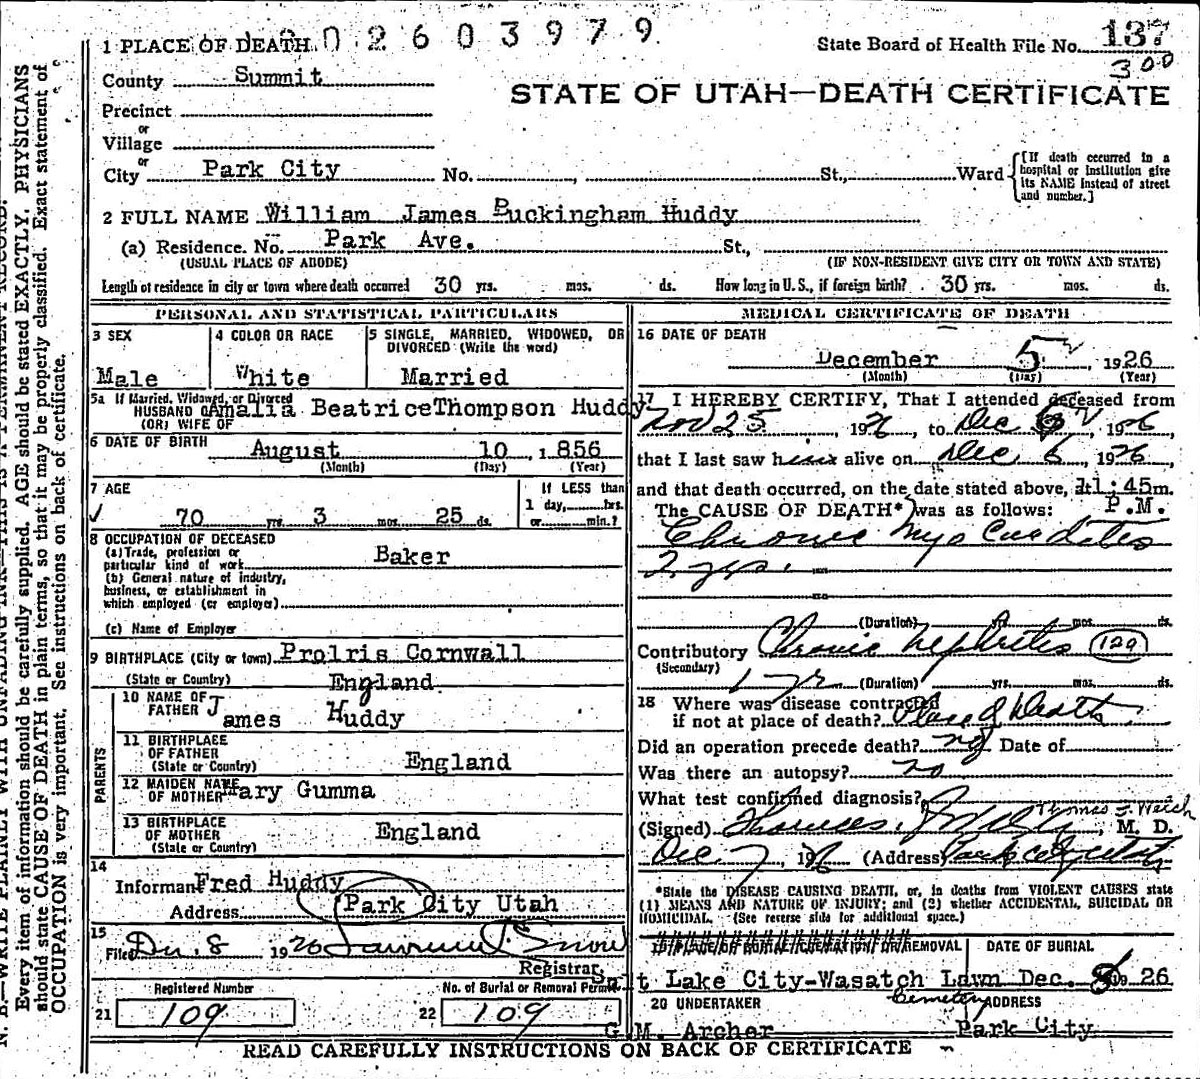 1 PLACE OF DEATH 02603979
State Board of Health File No. 137
300
County Summit
STATE OF UTAH—DEATH CERTIFICATE
Precinct
or
Village
or
City Park City No. , St., Ward [If death occurred in a hospital or institution give its NAME instead of street and number.]
2 FULL NAME William James Buckingham Huddy
(a) Residence. No. Park Ave. St.,
(USUAL PLACE OF ABODE) (IF NON-RESIDENT GIVE CITY OR TOWN AND STATE)
Length of residence in city or town where death occurred 30 yrs. mos. ds. How long in U.S., if foreign birth? 30 yrs. mos. ds.
PERSONAL AND STATISTICAL PARTICULARS
3 SEX
Male
4 COLOR OR RACE
White
5 SINGLE, MARRIED, WIDOWED, OR DIVORCED (Write the word)
Married
5a If Married, Widowed, or Divorced
HUSBAND OF Amalia Beatrice Thompson Huddy
(OR) WIFE OF
6 DATE OF BIRTH August 10, 1856
(Month) (Day) (Year)
7 AGE
70 yrs. 3 mos. 25 ds.
If LESS than
1 day, hrs.
or min.?
8 OCCUPATION OF DECEASED
(a) Trade, profession or
particular kind of work Baker
(b) General nature of industry,
business, or establishment in
which employed (or employer)
(c) Name of Employer
9 BIRTHPLACE (City or town) Prolris Cornwall
(State or Country) England
PARENTS
10 NAME OF
FATHER James Huddy
11 BIRTHPLACE
OF FATHER
(State or Country) England
12 MAIDEN NAME
OF MOTHER Mary Gumma
13 BIRTHPLACE
OF MOTHER
(State or Country) England
14
Informant Fred Huddy
Address Park City Utah
15
Filed Dec. 8 1926 Lawrence J. Snow
Registrar
Registered Number
21 109
No. of Burial or Removal Permit
22 109
MEDICAL CERTIFICATE OF DEATH
16 DATE OF DEATH
December 5 1926
(Month) (Day) (Year)
17 I HEREBY CERTIFY, That I attended deceased from
Nov 25, 1926, to Dec 1926,
that I last saw him alive on Dec 6, 1926,
and that death occurred, on the date stated above, at 11:45 m.
P.M.
The CAUSE OF DEATH* was as follows:
Chronic Myo Carditis
2 yrs.
(Duration) yrs. mos. ds.
Contributory Chronic nephritis 129
(Secondary)
1 yr (Duration) yrs. mos. ds.
18 Where was disease contracted
if not at place of death? Place of Death
Did an operation precede death? no Date of
Was there an autopsy? no
What test confirmed diagnosis?
Thomas E Welch
(Signed) Thomas, M. D.
Dec 7, 1926 (Address) Park City Utah
*State the DISEASE CAUSING DEATH, or, in deaths from VIOLENT CAUSES state
(1) MEANS AND NATURE OF INJURY; and (2) whether ACCIDENTAL, SUICIDAL OR
HOMICIDAL. (See reverse side for additional space.)
19 PLACE OF BURIAL, CREMATION OR REMOVAL DATE OF BURIAL
Salt Lake City-Wasatch Lawn Dec. 8 1926
Cemetery
20 UNDERTAKER ADDRESS
G.M. Archer Park City
READ CAREFULLY INSTRUCTIONS ON BACK OF CERTIFICATE
N. B.—WRITE PLAINLY WITH UNFADING INK—THIS IS A PERMANENT RECORD.
Every item of information should be carefully supplied. AGE should be stated EXACTLY. PHYSICIANS
should state CAUSE OF DEATH in plain terms, so that it may be properly classified. Exact statement of
OCCUPATION is very important. See instructions on back of certificate.